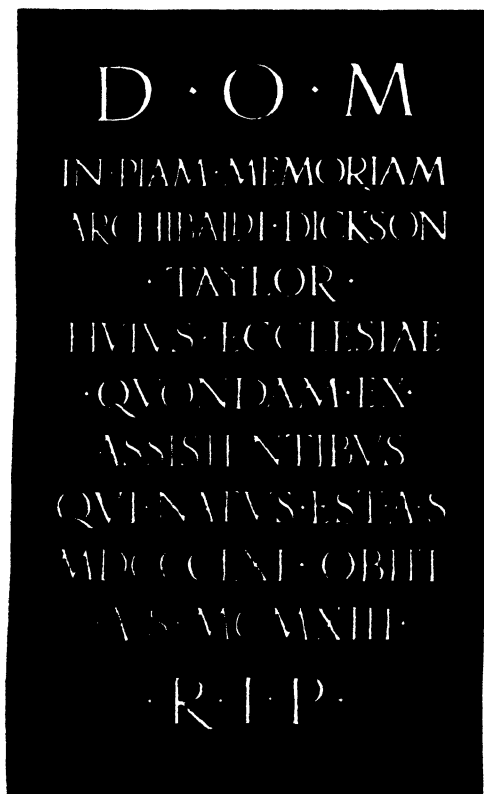 D · O · M
IN · PIAM · MEMORIAM
ARCHIBALDI · DICKSON
· TAYLOR ·
HVIVS · ECCLESIAE
· QVONDAM · EX ·
ASSISTENTIBVS
QVI · NATVS · EST · A · S
MDCCCLXI · OBIIT
· A · S · MCMXIII ·
· R · I · P ·